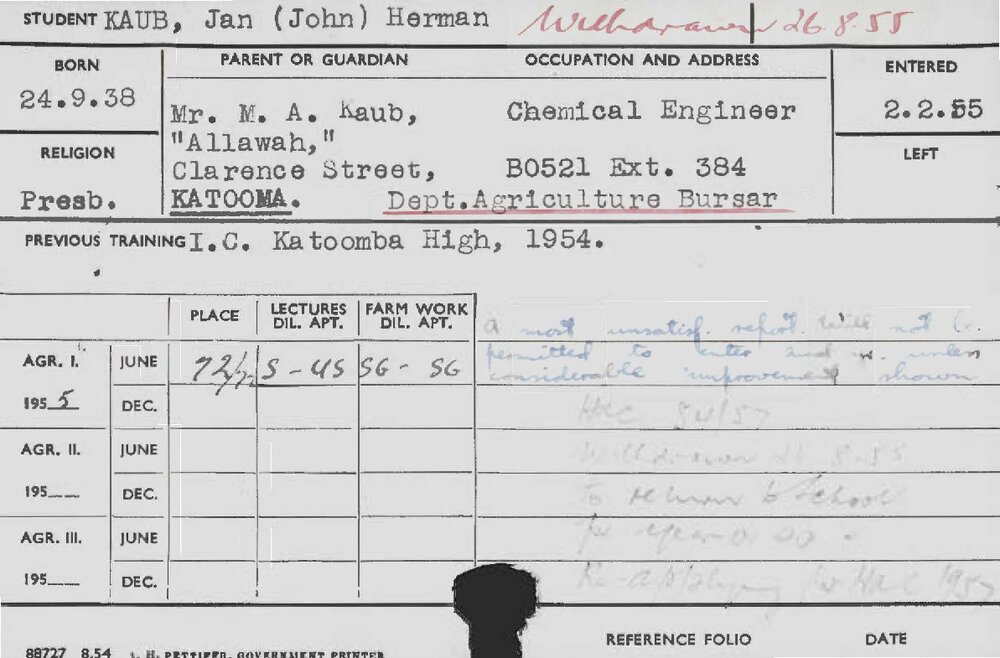 STUDENT KAUB, Jan (John) Herman Withdrawn 26.8.55
BORN PARENT OR GUARDIAN OCCUPATION AND ADDRESS ENTERED
24.9.38 Mr. M. A. Kaub, Chemical Engineer 2.2.55
"Allawah,"
RELIGION Clarence Street, B0521 Ext. 384 LEFT
Presb. KATOOMA. Dept.Agriculture Bursar
PREVIOUS TRAINING I.C. Katoomba High, 1954.
PLACE LECTURES DIL. APT. FARM WORK DIL. APT.
a most unsatisf. report. Will not be
AGR. I. JUNE 72/72 S - US SG - SG permitted to enter 2nd unless
considerable improvement shown
195 5 DEC. HAC 54/57
AGR. II. JUNE Withdrawn 26 8.55
195 DEC. to return to School
AGR. III. JUNE for
195 DEC. Re-applying for HAC 195
REFERENCE FOLIO DATE
88727 8.54 A. H. PETTIFER, GOVERNMENT PRINTER